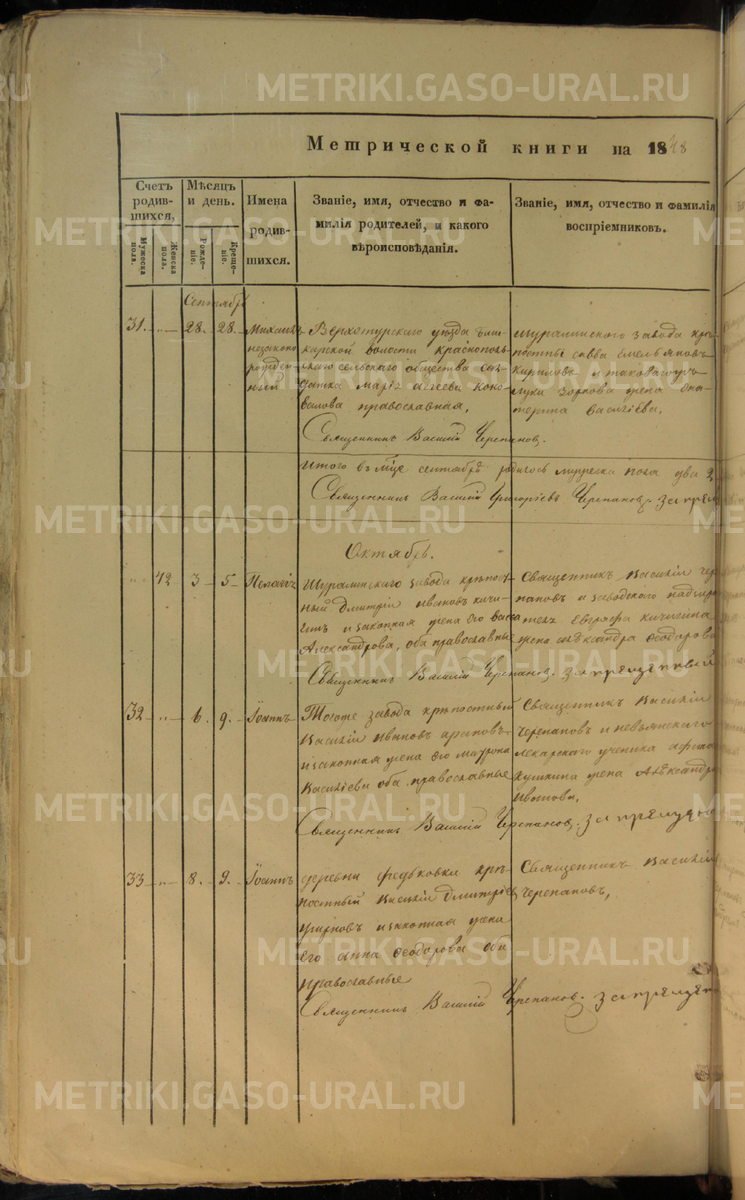 METRIKI.GASO-URAL.RU
Метрической книги на 1848
Счетъ родив-шихся.
Мужеска пола.
Женска пола.
Мѣсяцъ и день.
Рожде-ніе.
Креще-ніе.
Имена родив-шихся.
Званіе, имя, отчество и фа-
милія родителей, и какого
вѣроисповѣданія.
Званіе, имя, отчество и фамилія
воспріемниковъ.
Сентябрь
31. 28. 28. Михаилъ
незаконо
рожден
ный
Верхотурскаго уѣзда
волости краснополь
скаго сельскаго общества
Марія
православная,
Священникъ Василій Черепановъ.
Шуралинскаго завода крѣ
постный савва емельяновъ
Кириловъ и
жена
василіева,
Итого в мце сентябрѣ родилось мужеска пола два 2
Священникъ Василій Григоріевъ Черепановъ
Октябрь.
42 3 5 Пелагія
Шуралинскаго завода крѣпост
ный Дмитрій Ивановъ кичи
гинъ и законная жена его васса
Александрова, оба православные
Священникъ Василій Черепановъ. запрещенный
Священникъ Василій чер
пановъ и заводскаго надзир
теля Евграфа кичигина
жена александра Феодорова
32 6. 9. Іоаннъ
Тогоже завода крѣпостный
Василій Ивановъ араповъ
и законная жена его матрона
Василіева оба православные
Священникъ Василій Черепановъ.
Священникъ Василій
Черепановъ и невьянскаго
лекарскаго ученика
пушкина жена Александра
Иванова,
33 8. 9. Іоаннъ
деревни федьковки крѣ
постный василій Дмитріев
и законная жена
его анна Феодорова оба
православные
Священникъ Василій Черепановъ.
Священникъ Василій
Черепановъ,